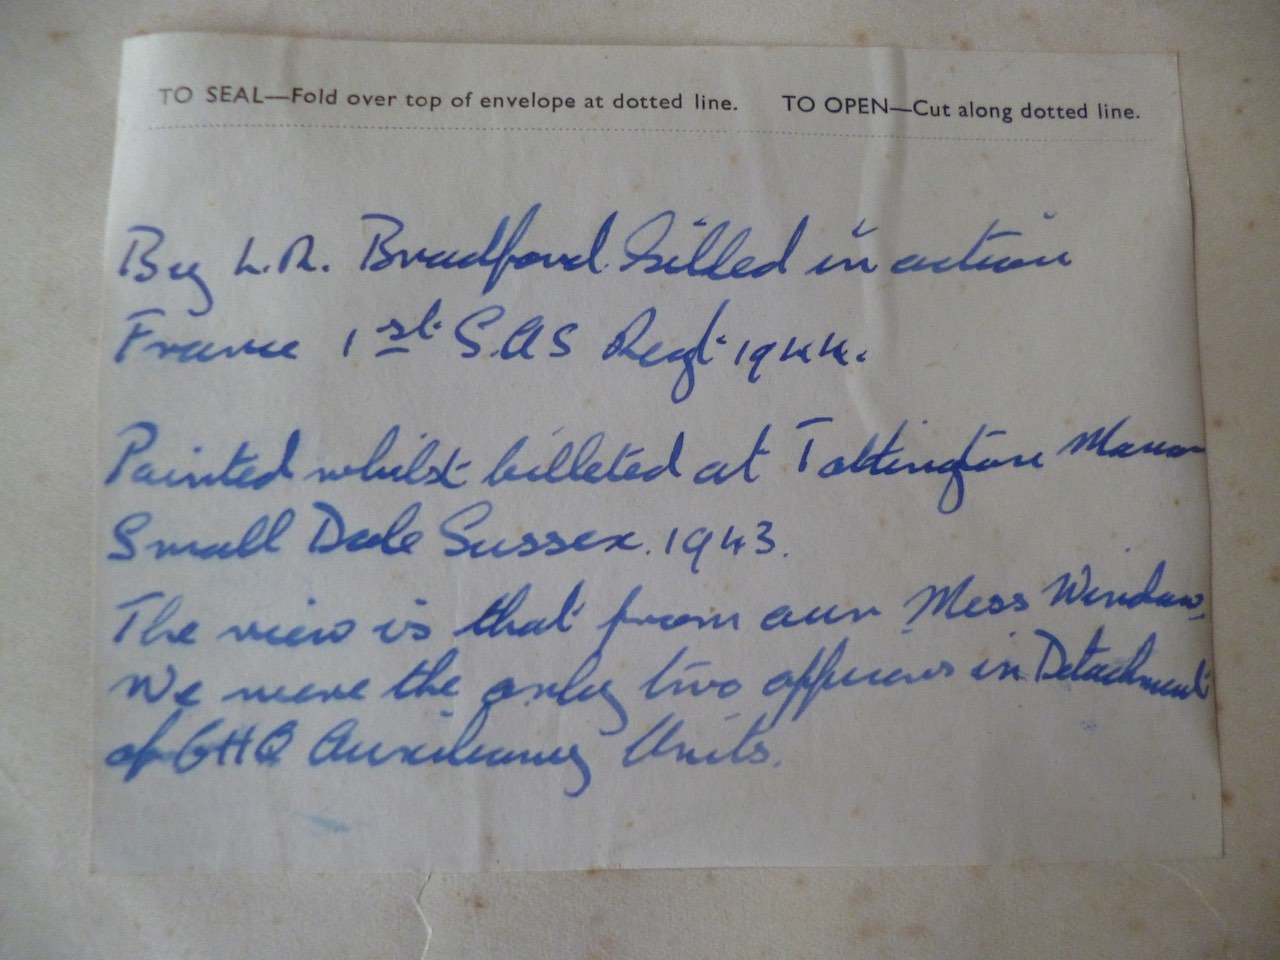 TO SEAL—Fold over top of envelope at dotted line. TO OPEN—Cut along dotted line.
By L.R. Bradford. killed in action
France 1st S.A.S Regt. 1944.
Painted whilst billeted at Tottington Manor
Small Dole Sussex. 1943.
The view is that from our Mess Window.
We were the only two officers in Detachment
of GHQ Auxiliary Units.